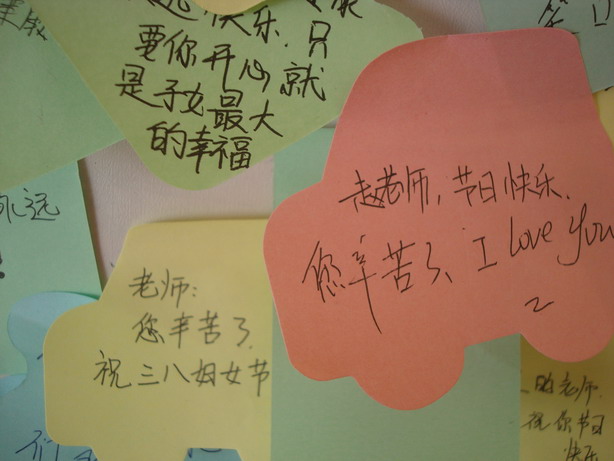 快乐.
要你开心,只
是子女最大就
的幸福
永远
赵老师,节日快乐.
您辛苦了、I love you
老师:
您辛苦了.
祝三八妇女节
的老师.
祝你节日
快乐
们